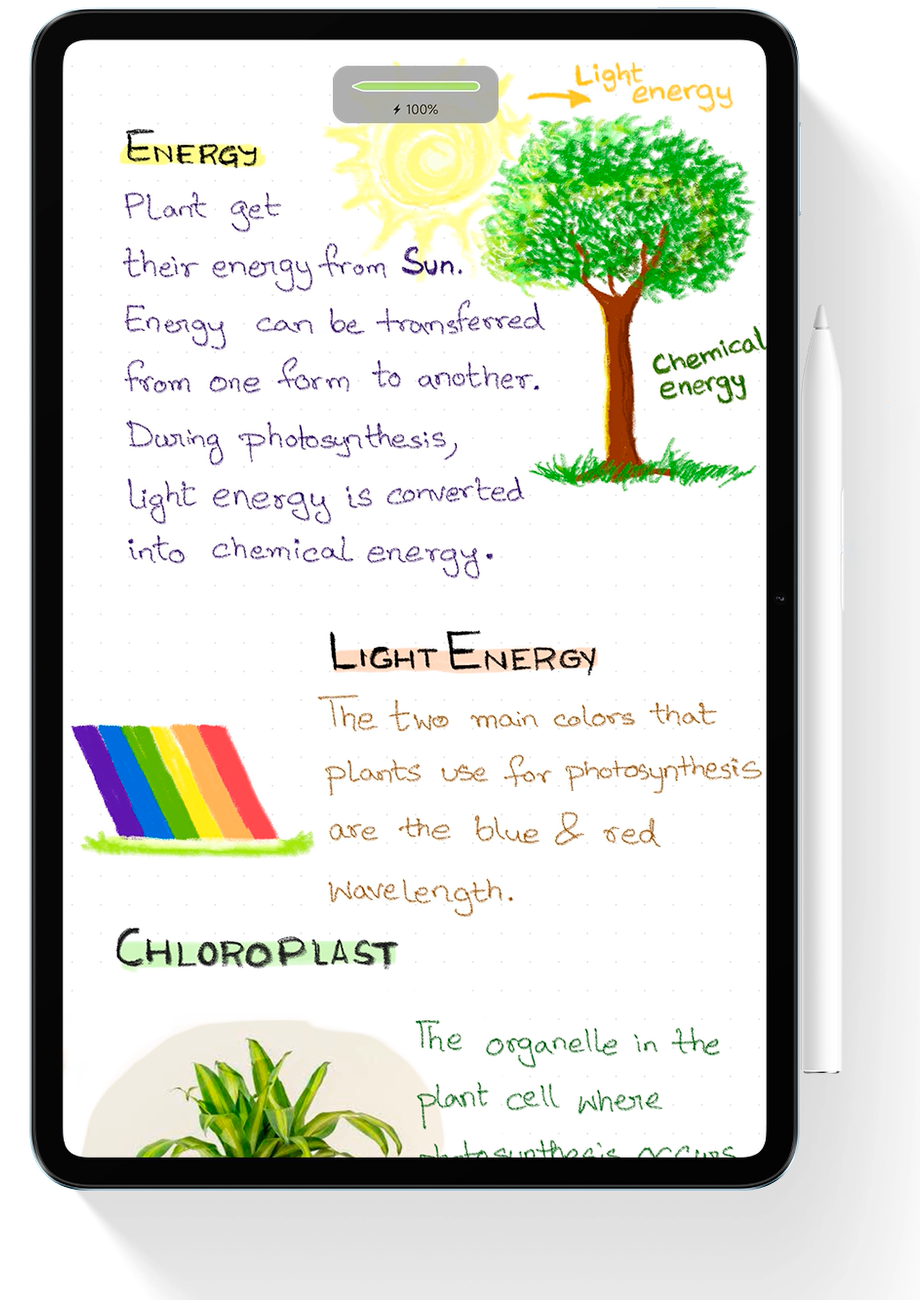 100%
Light
energy
ENERGY
Plant get
their energy from Sun.
Energy can be transferred
from one form to another.
During photosynthesis,
light energy is converted
into chemical energy.
Chemical
energy
LIGHT ENERGY
The two main colors that
plants use for photosynthesis
are the blue & red
wavelength.
CHLOROPLAST
The organelle in the
plant cell where
photosynthesis occurs